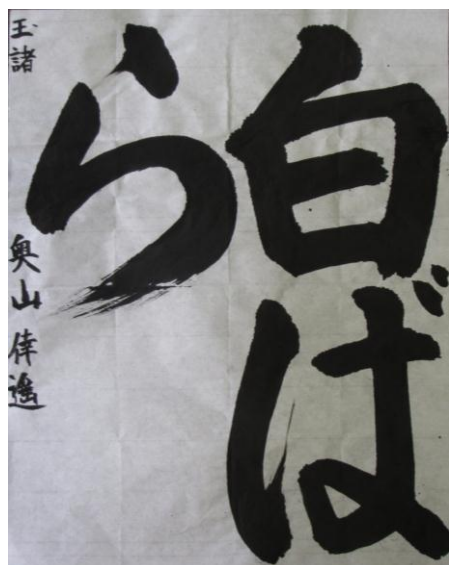 白ば
ら
玉諸
奥山倖遥